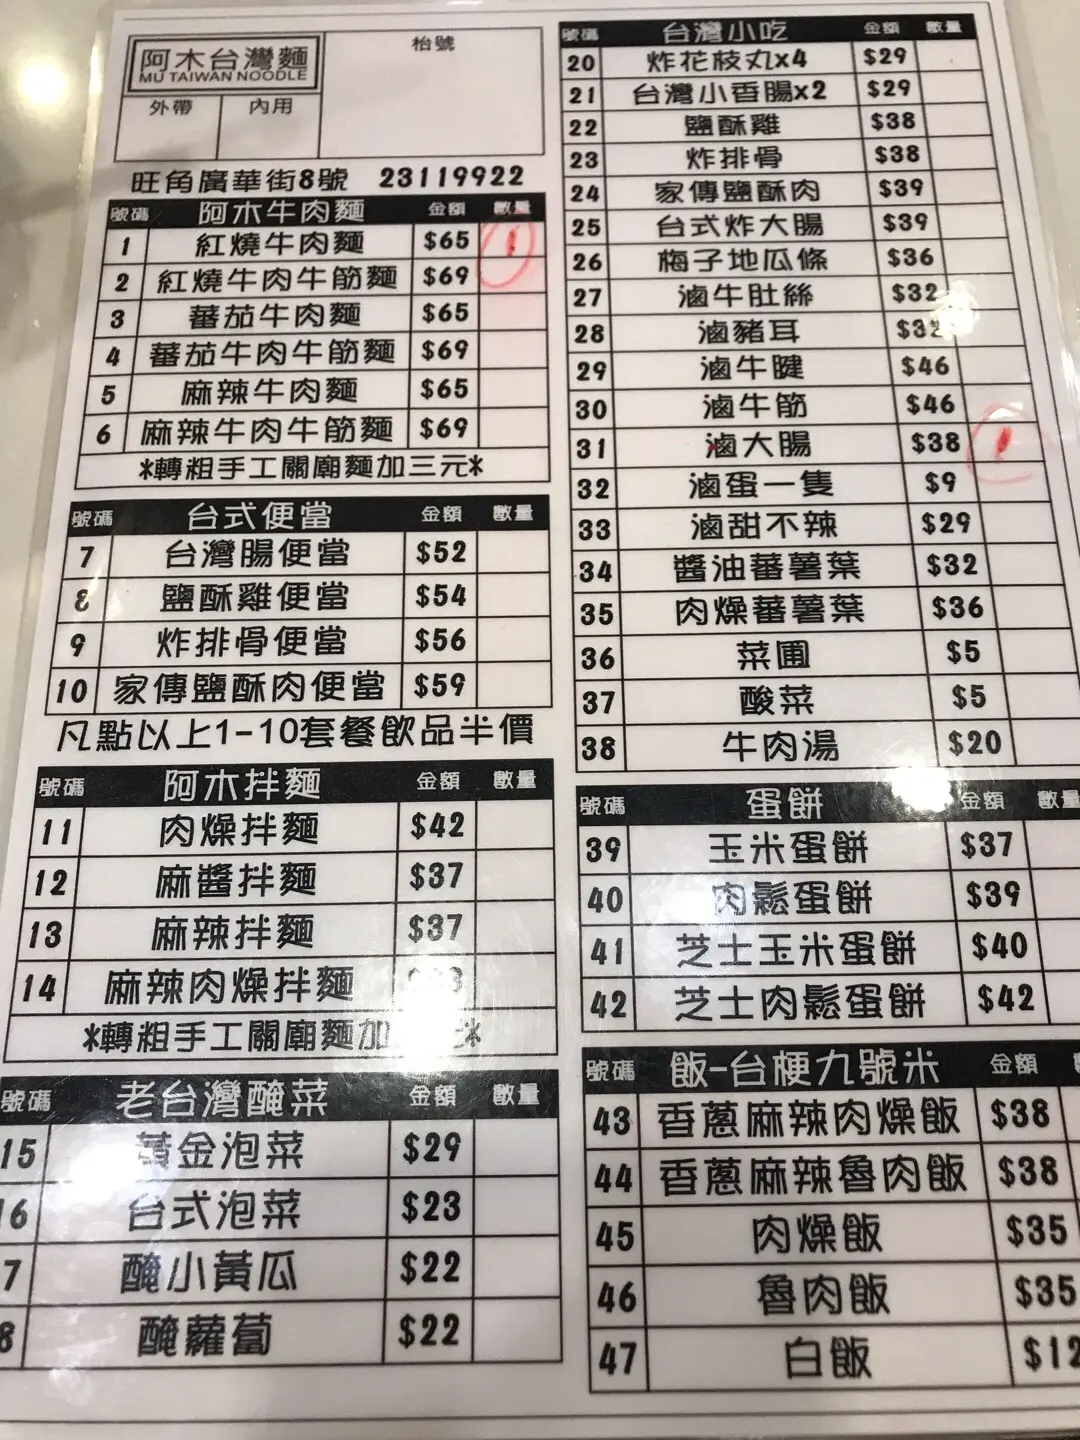 阿木台灣麵
MU TAIWAN NOODLE
枱號
外帶 內用
旺角廣華街8號 23119922
號碼 阿木牛肉麵 金額 數量
1 紅燒牛肉麵 $65 1
2 紅燒牛肉牛筋麵 $69
3 蕃茄牛肉麵 $65
4 蕃茄牛肉牛筋麵 $69
5 麻辣牛肉麵 $65
6 麻辣牛肉牛筋麵 $69
*轉粗手工關廟麵加三元*
號碼 台式便當 金額 數量
7 台灣腸便當 $52
8 鹽酥雞便當 $54
9 炸排骨便當 $56
10 家傳鹽酥肉便當 $59
凡點以上1-10套餐飲品半價
號碼 阿木拌麵 金額 數量
11 肉燥拌麵 $42
12 麻醬拌麵 $37
13 麻辣拌麵 $37
14 麻辣肉燥拌麵
*轉粗手工關廟麵加 元*
號碼 老台灣醃菜 金額 數量
15 黃金泡菜 $29
16 台式泡菜 $23
7 醃小黃瓜 $22
8 醃蘿蔔 $22
號碼 台灣小吃 金額 數量
20 炸花枝丸x4 $29
21 台灣小香腸x2 $29
22 鹽酥雞 $38
23 炸排骨 $38
24 家傳鹽酥肉 $39
25 台式炸大腸 $39
26 梅子地瓜條 $36
27 滷牛肚絲 $32
28 滷豬耳 $32
29 滷牛腱 $46
30 滷牛筋 $46
31 滷大腸 $38 1
32 滷蛋一隻 $9
33 滷甜不辣 $29
34 醬油蕃薯葉 $32
35 肉燥蕃薯葉 $36
36 菜圃 $5
37 酸菜 $5
38 牛肉湯 $20
號碼 蛋餅 金額 數量
39 玉米蛋餅 $37
40 肉鬆蛋餅 $39
41 芝士玉米蛋餅 $40
42 芝士肉鬆蛋餅 $42
號碼 飯-台梗九號米 金額
43 香蔥麻辣肉燥飯 $38
44 香蔥麻辣魯肉飯 $38
45 肉燥飯 $35
46 魯肉飯 $35
47 白飯 $12